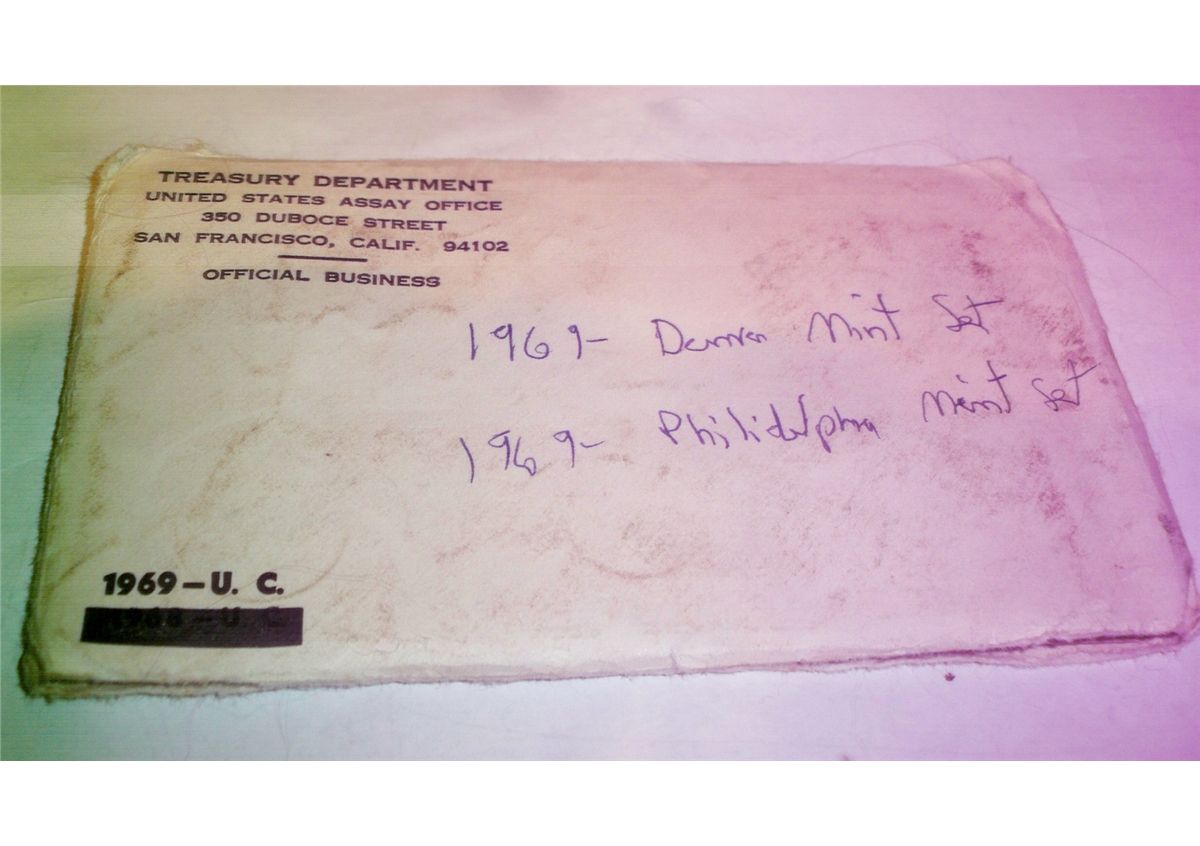 TREASURY DEPARTMENT
UNITED STATES ASSAY OFFICE
350 DUBOCE STREET
SAN FRANCISCO, CALIF. 94102
OFFICIAL BUSINESS
1969- Denver Mint Set
1969- Philidelphia Mint Set
1969-U. C.
1968-U. C.